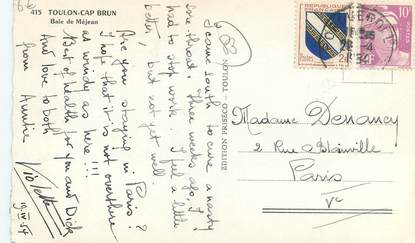 415 TOULON-CAP BRUN
Baie de Méjean
I came south to cure a nasty
sore throat. Three weeks ago, I
had to stop work. I feel a little
better, but not yet well.
Are you staying in Paris?
I hope that it is not
as windy as here!!!
Best of health for you and Dick
And love to both
from Auntie
Violette
EDITION PRISECO - TOULON
REPUBLIQUE FRANCAISE
Postes
10F
Madame Denancy
2 Rue Blainville
Paris
Ve